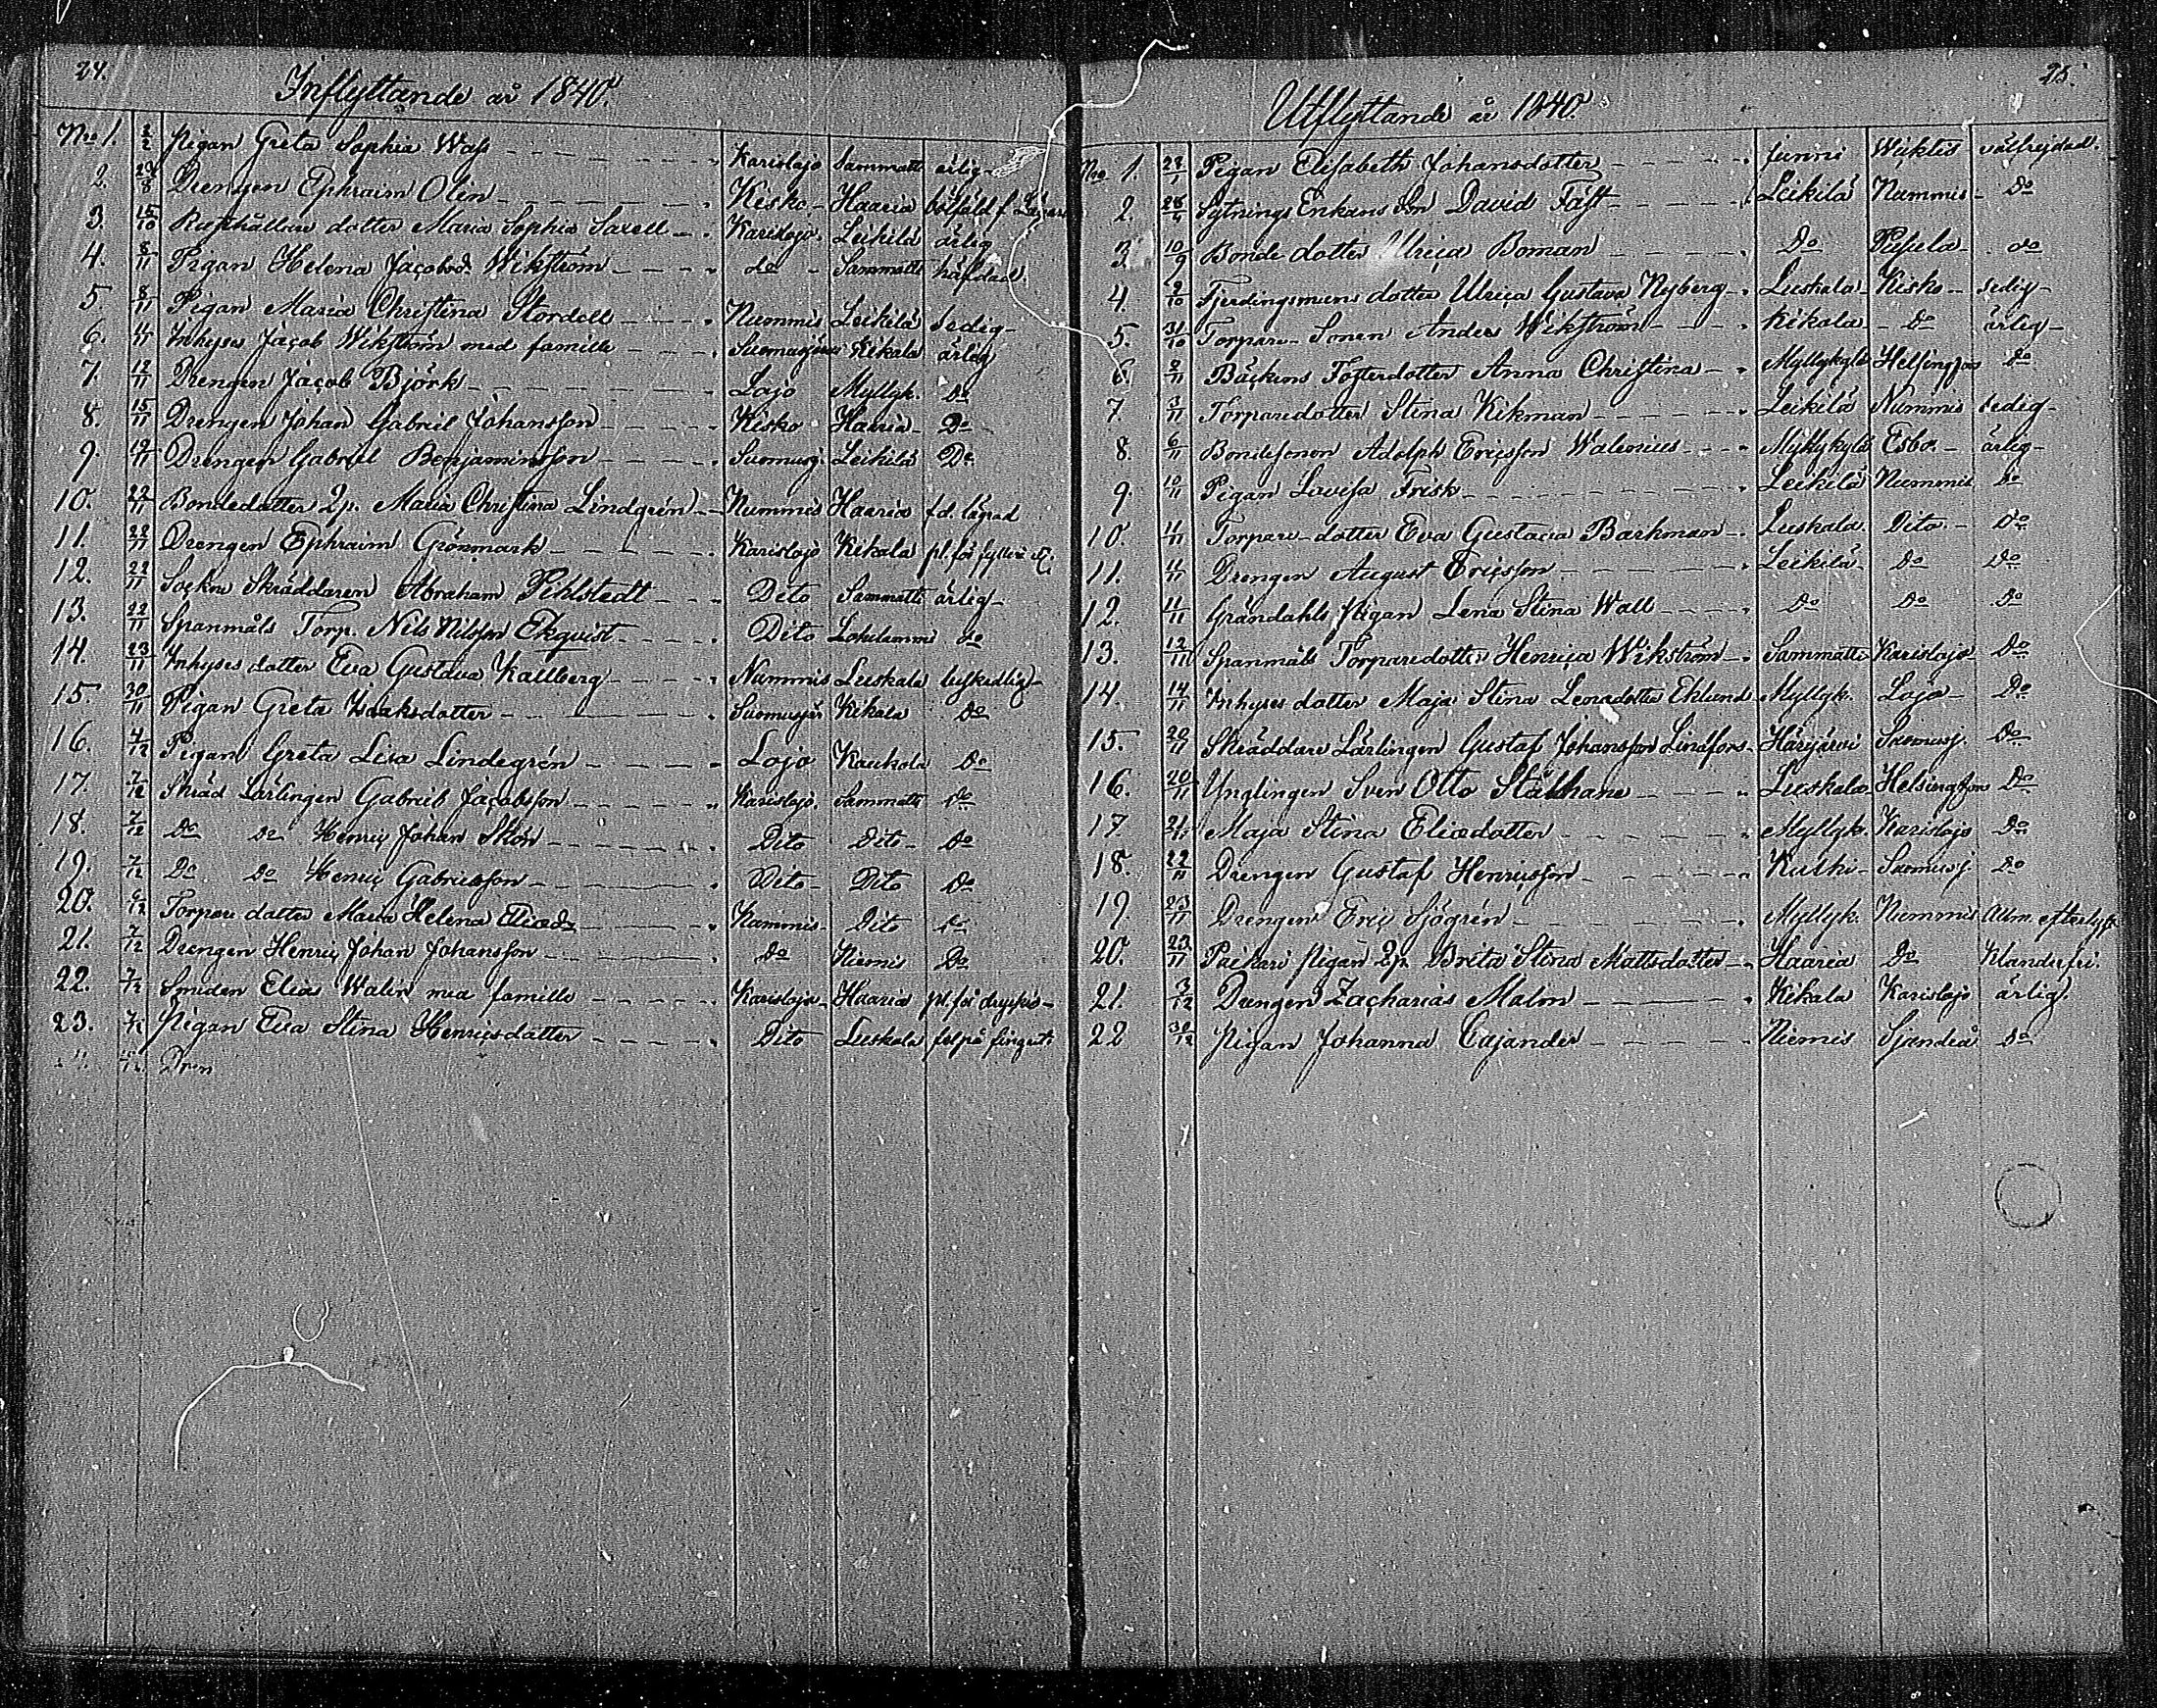 24.
Inflyttande år 1840.
No 1. 2/2 Pigan Greta Sophia Wass Karislojo Sammatti ärlig
2. 29/8 Drengen Ephraim Olin Kisko Haaria
3. 15/10 Rusthållare dotter Maria Sophia Saxell Karislojo Leikilä ärlig
4. 8/11 Pigan Helena Jacobsd. Wikström do Sammatti häfdad.
5 8/11 Pigan Maria Christina Stordell Nummis Leikilä sedig
6. 11 Inhyses Jacob Wikström med famille Suomusjärvi Kikala ärlig
7. 12/11 Drengen Jacob Björk Lojo Myllyk. Do
8. 15/11 Drengen Johan Gabriel Johansson Kisko Haaria Do
9. 19/11 Drengen Gabriel Benjaminsson Suomusj. Leikilä Do
10. 22/11 Bondedotter 2p. Maria Christina Lindgrén Nummis Haaria f.d. lägrad
11. 22/11 Drengen Ephraim Grönmark Karislojo Kikala pl. för fylleri
12. 22/11 Sockne Skräddaren Abraham Pihlstedt Dito Sammatti ärlig
13. 22/11 Spanmåls Torp. Nils Nilsson Ekqvist Dito Lohilammi do
14. 23/11 Inhyses dotter Eva Gustava Kallberg Nummis Luskala beskedlig
15. 30/11 Pigan Greta Isaksdotter Suomusjär Kikala Do
16. 4/12 Pigan Greta Lisa Lindegrén Lojo Kaukola Do
17. 7/12 Skräd Lärlingen Gabriel Jacobsson Karislojo. Sammatti Do
18. 7/12 Do Do Henric Johan Skön Dito Dito Do
19. 7/12 Do Do Henric Gabrielsson Dito Dito Do
20. 6/12 Torpare dotter Maria Helena Eliædr Nummis Dito Do
21. 7/12 Drengen Henric Johan Johansson do Niemis Do
22. 7/12 Smeden Elias Walin med famille Karislojo Haaria pl. för dryckis
23. 7/12 Pigan Eva Stina Henricsdotter Dito Luskala
Dren
25.
Utflyttande år 1840.
No 1. 23/1 Pigan Elisabeth Johansdotter Junni Wichtis välfrejdad.
2. 28/4 Sytnings Enkans son David Fäst Leikilä Nummis Do
3 10/9 Bonde dotter Ulrica Boman Do do
4. 9/10 Fjerdingsmans dotter Ulrica Gustava Nyberg Luskala Kisko sedig
5. 31/10 Torpare Sonen Anders Wikström Kikala Do ärlig
6. 2/11 Bäckens Fosterdotter Anna Christina Myllykylä Helsingfors Do
7 3/11 Torparedotter Stina Kikman Leikilä Nummis sedig
8. 6/11 Bondesonen Adolph Ericsson Walenius Myllykylä Esbo. ärlig
9. 10/11 Pigan Lovisa Frisk Leikilä Nummis Do
10. 11/11 Torpare dotter Eva Gustava Backman Luskala Dito Do
11. 11/11 Drengen August Ericsson Leikilä Do Do
12. 11/11 Grändahls Pigan Lena Stina Wall Do Do Do
13. 12/11 Spanmåls Torparedotter Henrica Wikström Sammatti Karislojo Do
14. 14/11 Inhyses dotter Maja Stina Leonsdotter Eklund Myllyk. Lojo Do
15. 20/11 Skräddare Lärlingen Gustaf Johansson Lindfors Härjärvi Suomusj. Do
16. 20/11 Ynglingen Sven Otto Stålhane Luskala Helsingfors Do
17 21/11 Maja Stina Eliædotter Myllyk. Karislojo Do
18. 22/11 Drengen Gustaf Henricsson Kuthi Suomusj. Do
19 23/11 Drengen Eric Sjögrén Myllyk. Nummis
20. 23/11 Paikari Pigan 2p. Brita Stina Mattsdotter Haaria Do Klanderfri.
21. 3/12 Drengen Zacharias Malm Kikala Karislojo ärlig.
22 30/12 Pigan Johanna Cajander Niemis Sjundeå do